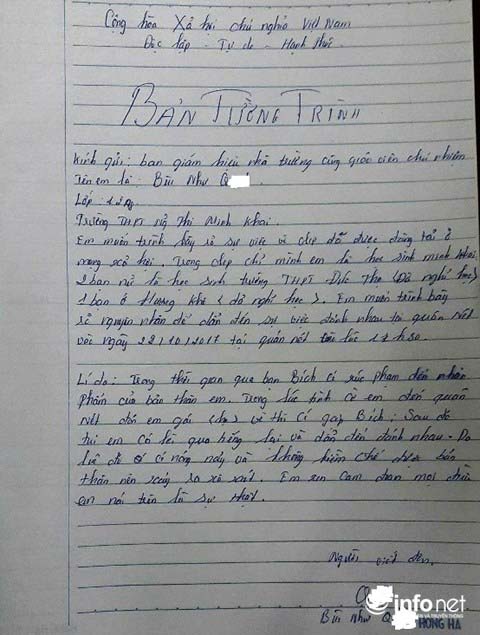 Cộng hòa Xã hội chủ nghĩa Việt Nam
Độc lập - Tự do - Hạnh Phúc
BẢN TƯỜNG TRÌNH
Kính gửi: ban giám hiệu nhà trường cùng giáo viên chủ nhiệm
Tên em là: Bùi Như Q
Lớp:
Trường THPT Ng Thị Minh Khai.
Em muốn trình bày rõ sự việc về clip đã được đăng tải ở
mạng xã hội. Trong clip chỉ mình em là học sinh minh khai
2 bạn nữ là học sinh trường THPT Đức Thọ (Đã nghỉ học)
1 bạn ở Hương Khê (đã nghỉ học). Em muốn trình bày
rõ nguyên nhân để dẫn đến sự việc đánh nhau tại quán nét
vào ngày 22/10/2017 tại quán nét lúc
Lí do: Trong thời gian qua bạn Bích có xúc phạm đến nhân
phẩm của bản thân em. Trong lúc tình cờ em đến quán
nét đón em gái thì có gặp Bích. Sau đó
tụi em có lời qua tiếng lại và dẫn đến đánh nhau. Do
có nóng nảy và không kiềm chế được bản
thân nên xảy ra xô xát. Em xin cam đoan mọi điều
em nói trên là sự thật.
Người viết đơn.
Bùi Như Q
infonet
PHONG HA